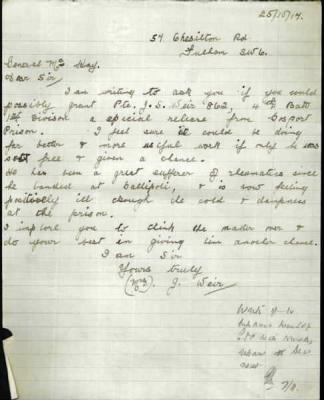 25/10/17.
57 Chesilton Rd
Fulham SW6.
General McC Hay.
Dear Sir
I am writing to ask you if you would
possibly grant Pte. J. S. Weir 862, 4th Batt
1st Divison a special release from Gosport
Prison. I feel sure it could be doing
far better & more useful work if only he was
sett free & given a chance.
He has been a great sufferer of rheumatics since
he landed at Gallipoli, & is now feeling
positively ill through the cold & dampness
at the prison.
I implore you to think the matter over &
do your best in giving him another chance.
I am Sir
Yours truly
(Mrs) J. Weir